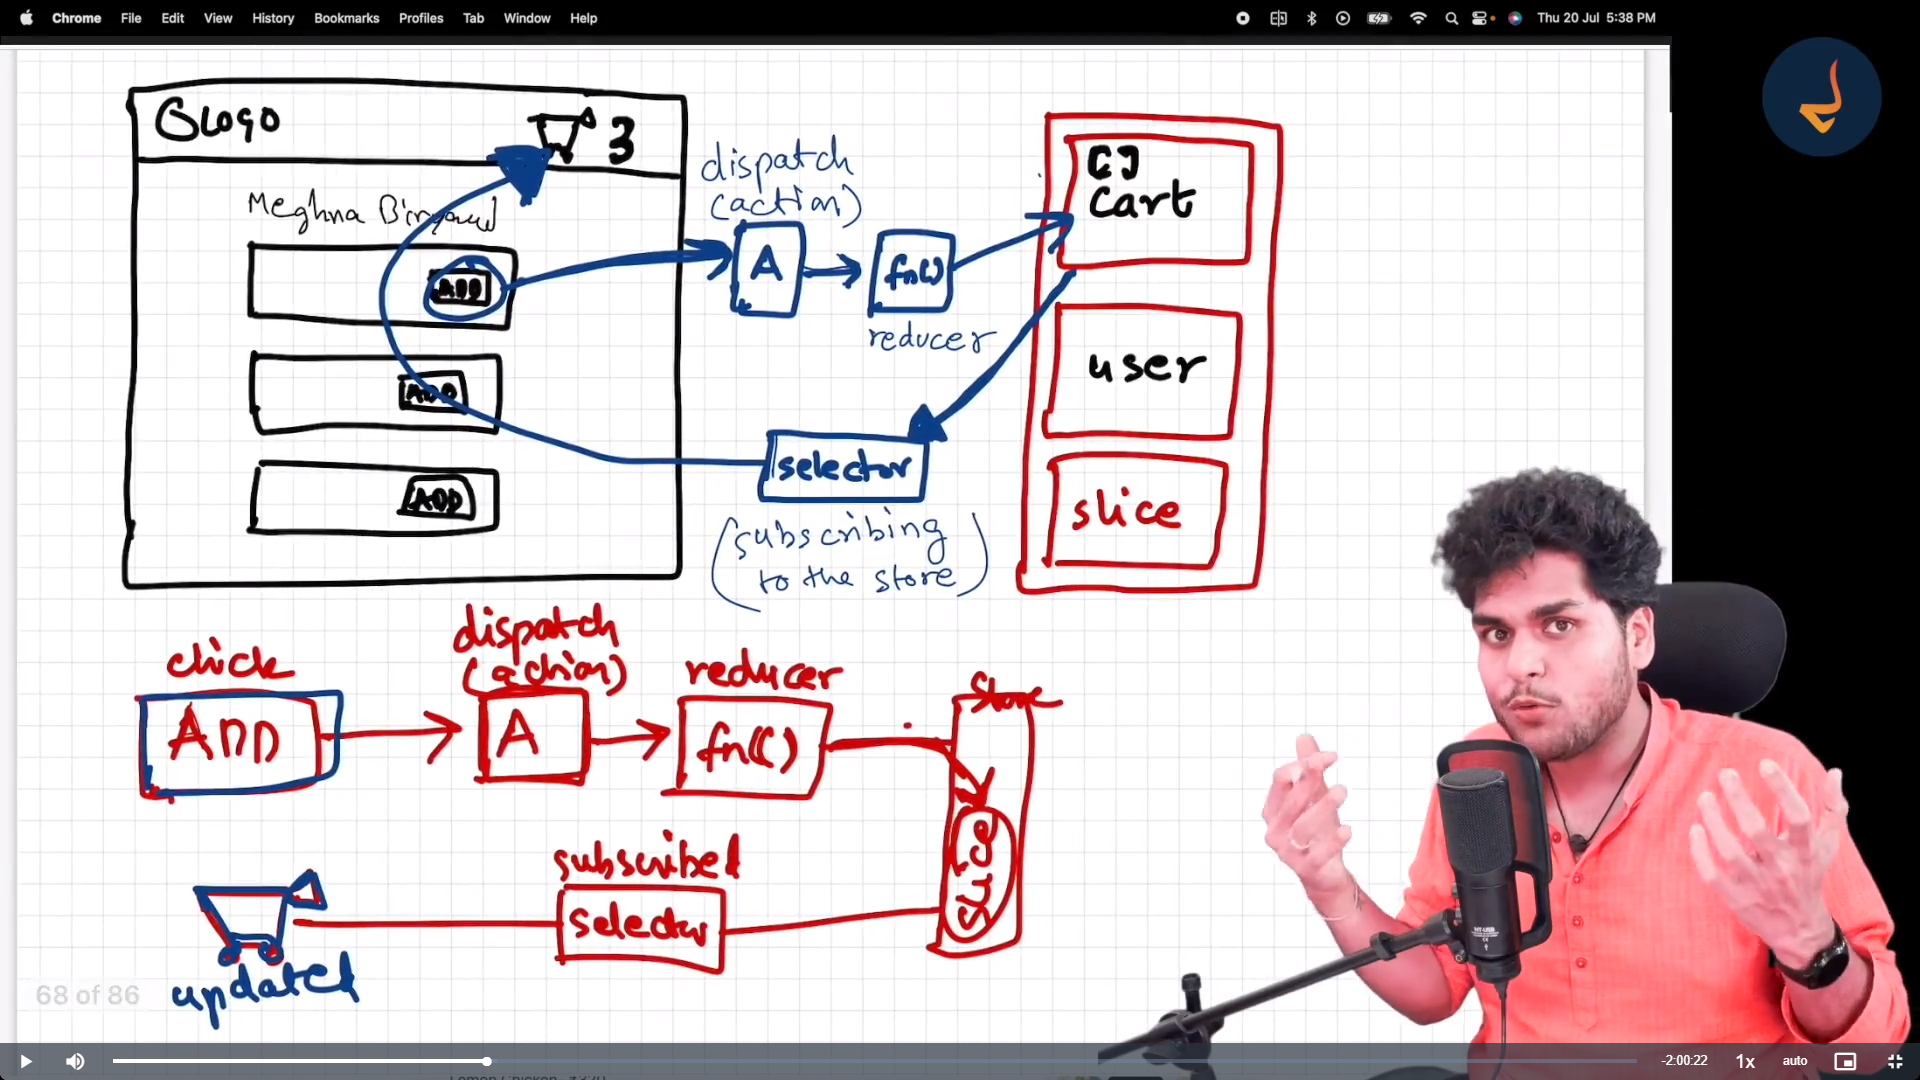 Chrome File Edit View History Bookmarks Profiles Tab Window Help
Thu 20 Jul 5:38 PM
Logo
3
Meghna Biryani
ADD
ADD
ADD
dispatch
(action)
A
fn()
reducer
[]
Cart
user
slice
selector
(subscribing
to the store)
click
ADD
dispatch
(action)
A
reducer
fn()
Store
slice
subscribed
selector
updated
68 of 86
-2:00:22
1x
auto